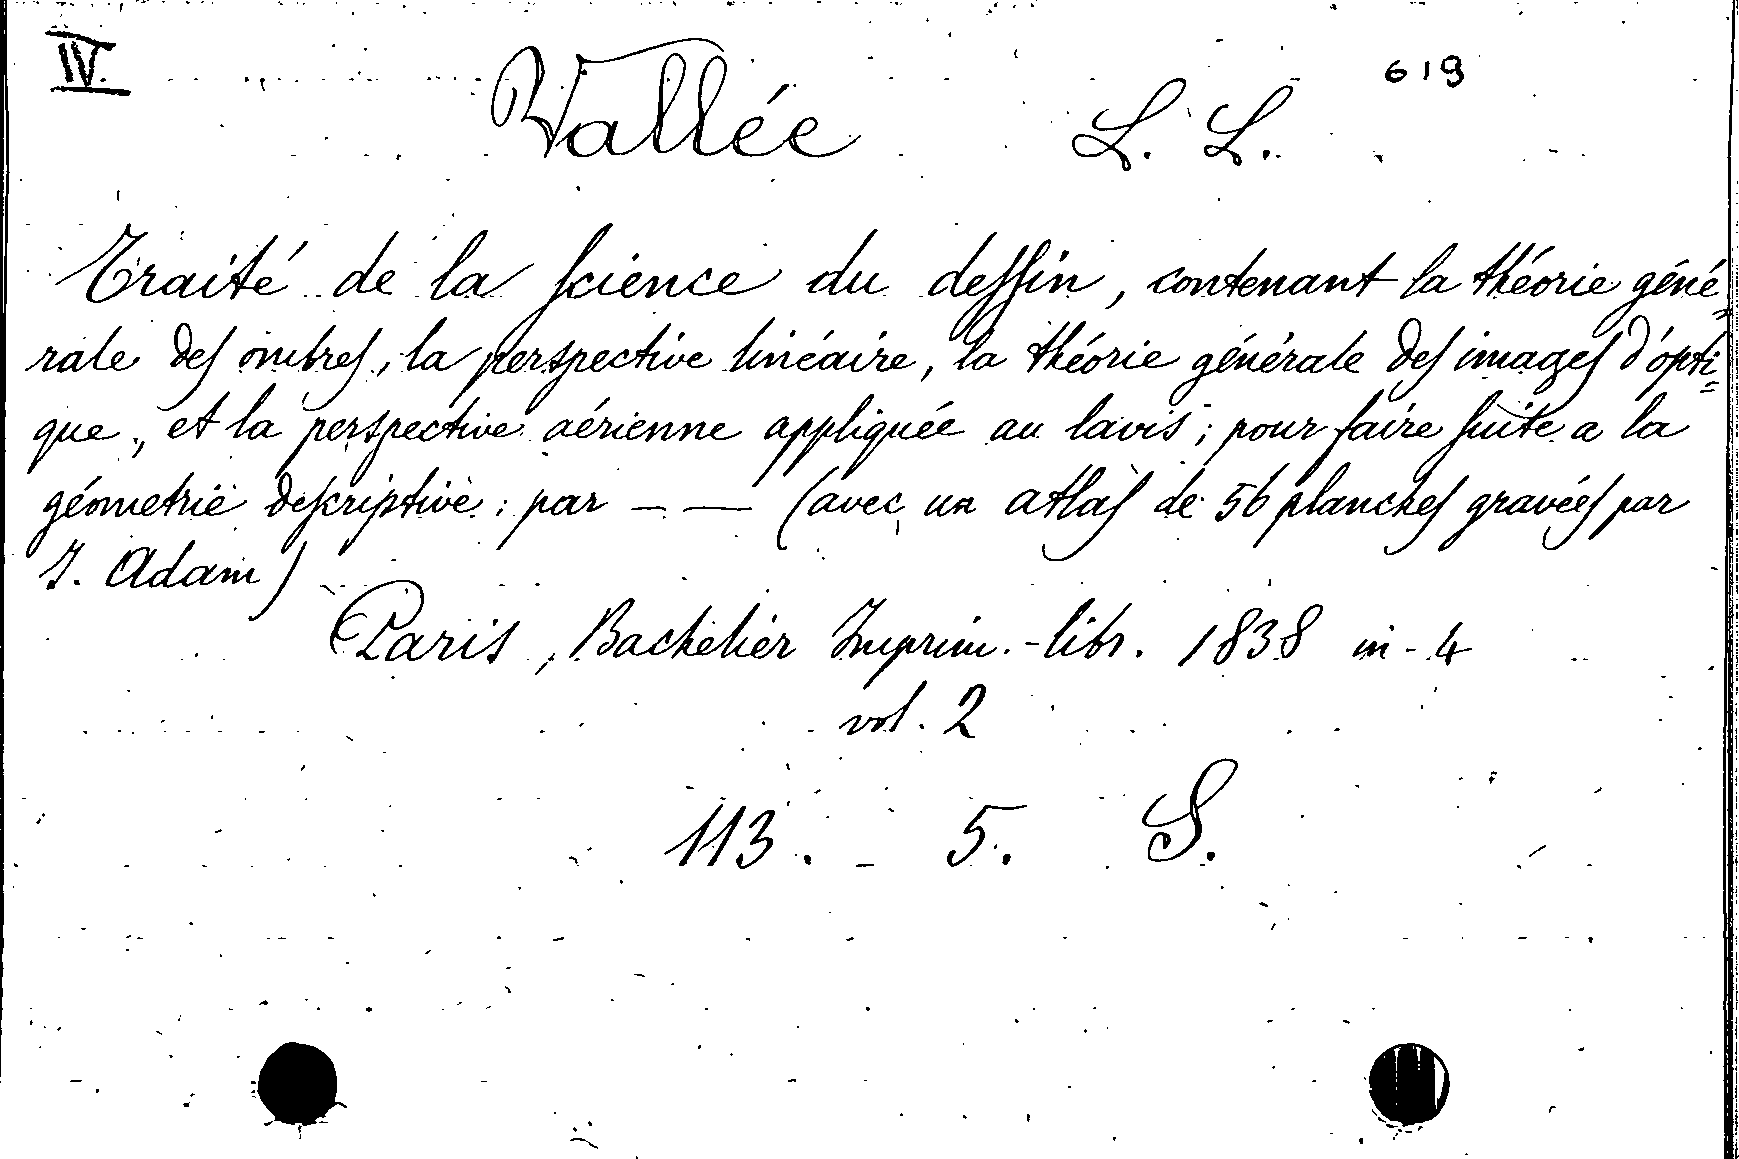 IV.
619
Vallée L. L.
Traité de la science du dessin, contenant la théorie géné-
rale des ombres, la perspective linéaire, la théorie générale des images d'opti=
que, et la perspective aérienne appliquée au lavis; pour faire suite a la
géometrie descriptive; par — — (avec un atlas de 56 planches gravées par
J. Adam)
Paris, Bachelier Imprim.-libr. 1838 in-4
vol. 2
113. - 5. S.